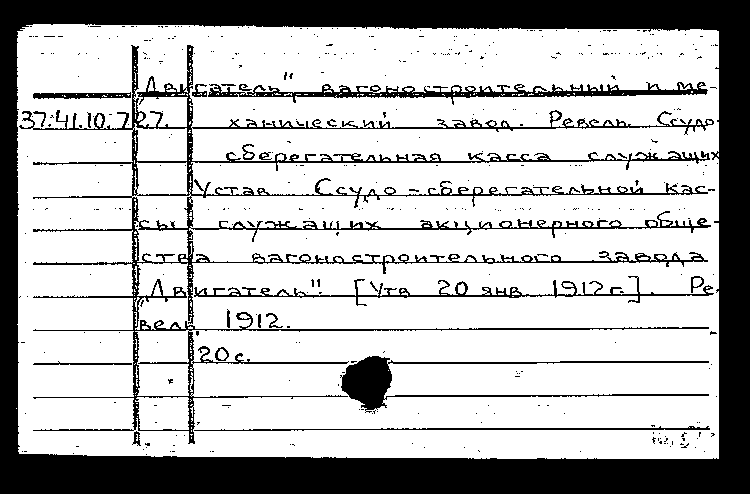 „Двигатель", вагоностроительный и ме-
37.41.10.727. ханический завод. Ревель. Ссудо-
сберегательная касса служащих
Устав Ссудо-сберегательной кас-
сы служащих акционерного обще-
ства вагоностроительного завода
„Двигатель". [Утв 20 янв. 1912 г.]. Ре-
вель, 1912.
20 с.